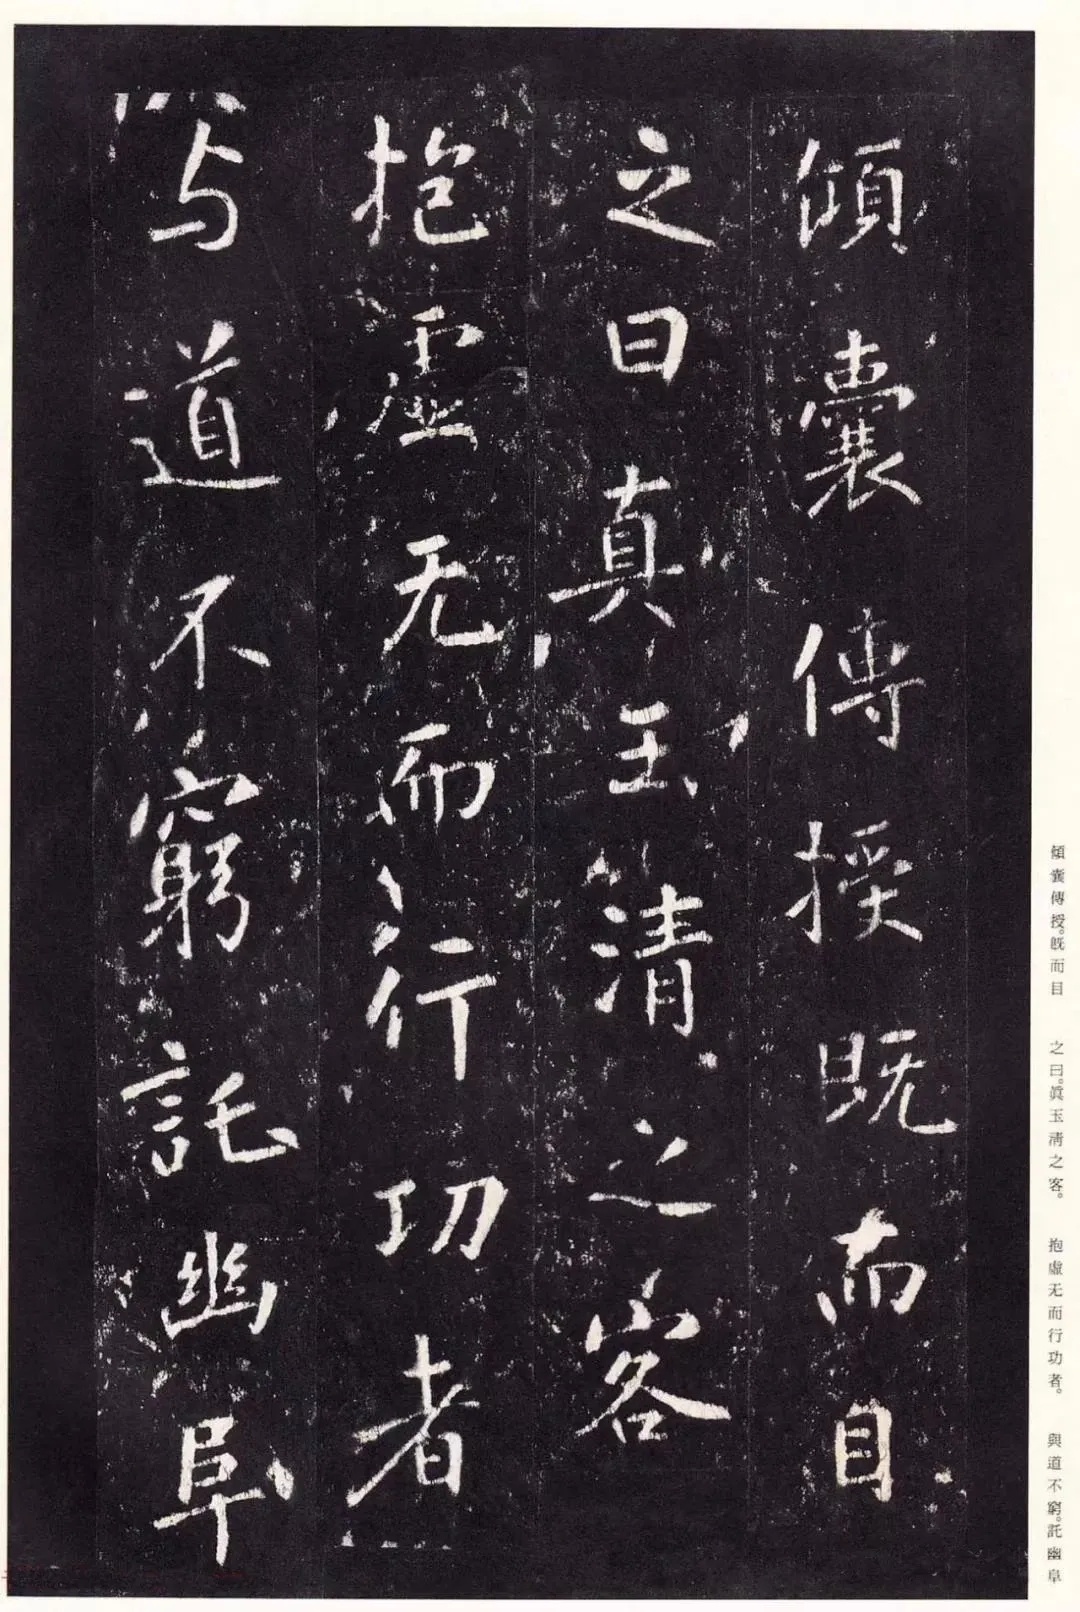 傾囊傳授既而目
之曰真玉清之客
抱虛无而行功者
与道不窮託幽阜
傾囊傳授。既而目　之曰。眞玉淸之客。　抱虛无而行功者。　與道不窮。託幽阜